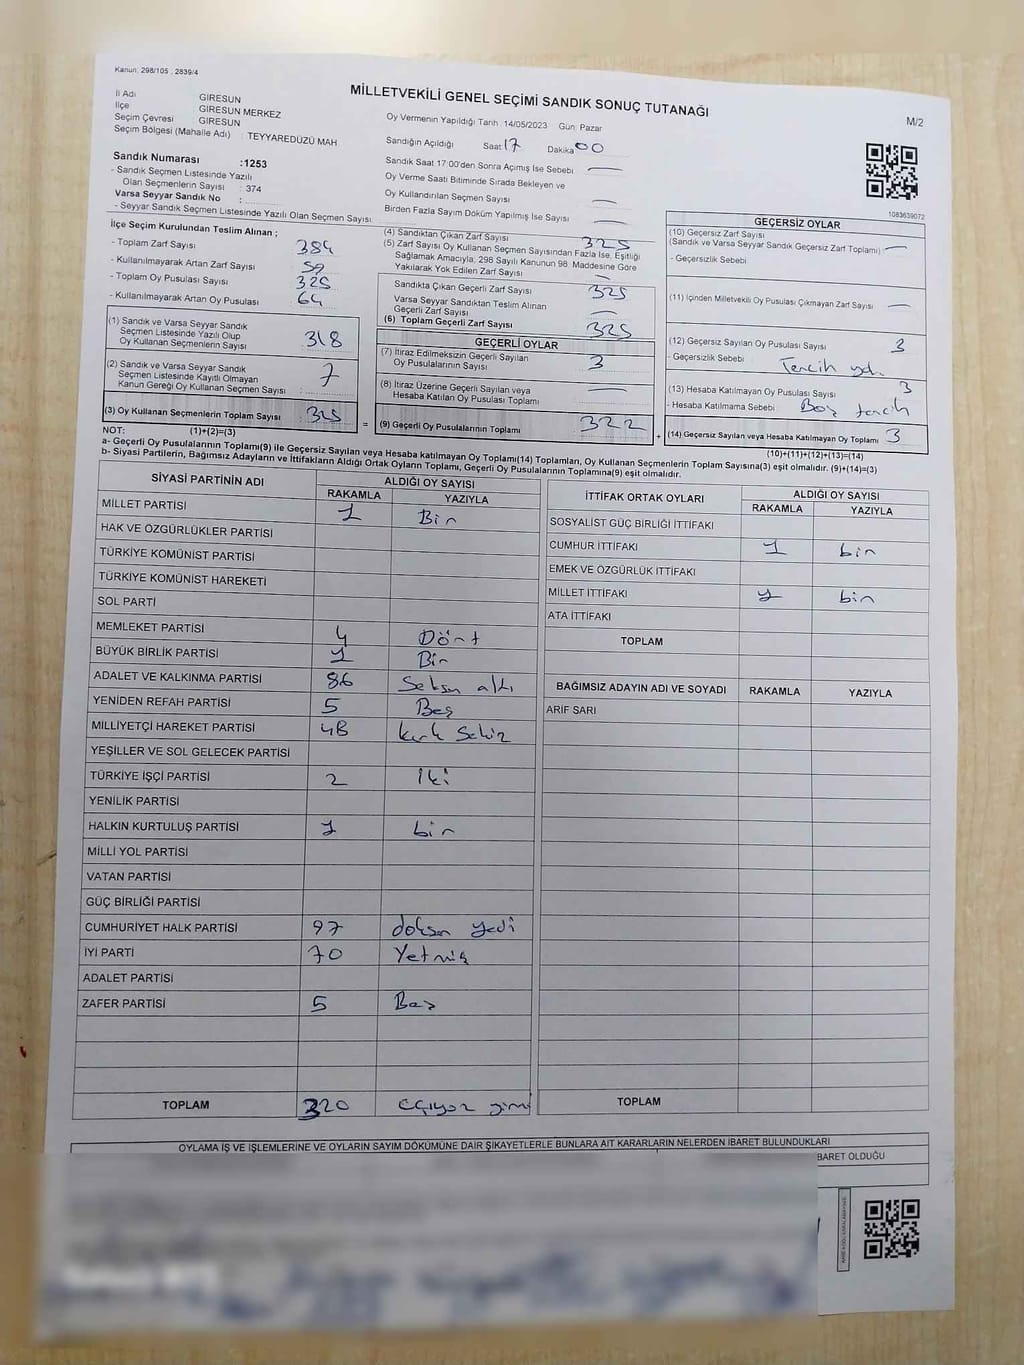 Kanun: 298/105 , 2839/4
MİLLETVEKİLİ GENEL SEÇİMİ SANDIK SONUÇ TUTANAĞI
M/2
İl Adı GİRESUN
İlçe GİRESUN MERKEZ
Seçim Çevresi GİRESUN
Seçim Bölgesi (Mahalle Adı) : TEYYAREDÜZÜ MAH
Oy Vermenin Yapıldığı Tarih : 14/05/2023 Gün: Pazar
Sandığın Açıldığı Saat 17 Dakika 00
Sandık Saat 17:00'den Sonra Açımış İse Sebebi —
Oy Verme Saati Bitiminde Sırada Bekleyen ve
Oy Kullandırılan Seçmen Sayısı —
Birden Fazla Sayım Döküm Yapılmış İse Sayısı —
Sandık Numarası :1253
- Sandık Seçmen Listesinde Yazılı
Olan Seçmenlerin Sayısı : 374
Varsa Seyyar Sandık No :
- Seyyar Sandık Seçmen Listesinde Yazılı Olan Seçmen Sayısı:
1083639072
İlçe Seçim Kurulundan Teslim Alınan ;
- Toplam Zarf Sayısı 384
- Kullanılmayarak Artan Zarf Sayısı 59
- Toplam Oy Pusulası Sayısı 325
- Kullanılmayarak Artan Oy Pusulası 64
(1) Sandık ve Varsa Seyyar Sandık
Seçmen Listesinde Yazılı Olup
Oy Kullanan Seçmenlerin Sayısı 318
(2) Sandık ve Varsa Seyyar Sandık
Seçmen Listesinde Kayıtlı Olmayan
Kanun Gereği Oy Kullanan Seçmen Sayısı : 7
(3) Oy Kullanan Seçmenlerin Toplam Sayısı 325
(4) Sandıktan Çıkan Zarf Sayısı 325
(5) Zarf Sayısı Oy Kullanan Seçmen Sayısından Fazla İse, Eşitliği
Sağlamak Amacıyla, 298 Sayılı Kanunun 98. Maddesine Göre
Yakılarak Yok Edilen Zarf Sayısı —
Sandıkta Çıkan Geçerli Zarf Sayısı 325
Varsa Seyyar Sandıktan Teslim Alınan
Geçerli Zarf Sayısı —
(6) Toplam Geçerli Zarf Sayısı 325
GEÇERLİ OYLAR
(7) İtiraz Edilmeksizin Geçerli Sayılan
Oy Pusulalarının Sayısı 3
(8) İtiraz Üzerine Geçerli Sayılan veya
Hesaba Katılan Oy Pusulası Toplamı —
= (9) Geçerli Oy Pusulalarının Toplamı 322
GEÇERSİZ OYLAR
(10) Geçersiz Zarf Sayısı
(Sandık ve Varsa Seyyar Sandık Geçersiz Zarf Toplamı) —
- Geçersizlik Sebebi
(11) İçinden Milletvekili Oy Pusulası Çıkmayan Zarf Sayısı —
(12) Geçersiz Sayılan Oy Pusulası Sayısı 3
- Geçersizlik Sebebi : Tercih
(13) Hesaba Katılmayan Oy Pusulası Sayısı 3
- Hesaba Katılmama Sebebi Boş tercih
+ (14) Geçersiz Sayılan veya Hesaba Katılmayan Oy Toplamı 3
NOT: (1)+(2)=(3)
(10)+(11)+(12)+(13)=(14)
a- Geçerli Oy Pusulalarının Toplamı(9) ile Geçersiz Sayılan veya Hesaba katılmayan Oy Toplamı(14) Toplamları, Oy Kullanan Seçmenlerin Toplam Sayısına(3) eşit olmalıdır. (9)+(14)=(3)
b- Siyasi Partilerin, Bağımsız Adayların ve İttifakların Aldığı Ortak Oyların Toplamı, Geçerli Oy Pusulalarının Toplamına(9) eşit olmalıdır.
SİYASİ PARTİNİN ADI ALDIĞI OY SAYISI
RAKAMLA YAZIYLA
MİLLET PARTİSİ 1 Bir
HAK VE ÖZGÜRLÜKLER PARTİSİ
TÜRKİYE KOMÜNİST PARTİSİ
TÜRKİYE KOMÜNİST HAREKETİ
SOL PARTİ
MEMLEKET PARTİSİ 4 Dört
BÜYÜK BİRLİK PARTİSİ 1 Bir
ADALET VE KALKINMA PARTİSİ 86 Seksen altı
YENİDEN REFAH PARTİSİ 5 Beş
MİLLİYETÇİ HAREKET PARTİSİ 48 kırk Sekiz
YEŞİLLER VE SOL GELECEK PARTİSİ
TÜRKİYE İŞÇİ PARTİSİ 2 İki
YENİLİK PARTİSİ
HALKIN KURTULUŞ PARTİSİ 1 bir
MİLLİ YOL PARTİSİ
VATAN PARTİSİ
GÜÇ BİRLİĞİ PARTİSİ
CUMHURİYET HALK PARTİSİ 97 doksan yedi
İYİ PARTİ 70 Yetmiş
ADALET PARTİSİ
ZAFER PARTİSİ 5 Beş
TOPLAM 320
İTTİFAK ORTAK OYLARI ALDIĞI OY SAYISI
RAKAMLA YAZIYLA
SOSYALİST GÜÇ BİRLİĞİ İTTİFAKI
CUMHUR İTTİFAKI 1 bir
EMEK VE ÖZGÜRLÜK İTTİFAKI
MİLLET İTTİFAKI 1 bir
ATA İTTİFAKI
TOPLAM
BAĞIMSIZ ADAYIN ADI VE SOYADI RAKAMLA YAZIYLA
ARİF SARI
TOPLAM
OYLAMA İŞ VE İŞLEMLERİNE VE OYLARIN SAYIM DÖKÜMÜNE DAİR ŞİKAYETLERLE BUNLARA AİT KARARLARIN NELERDEN İBARET BULUNDUKLARI
BARET OLDUĞU